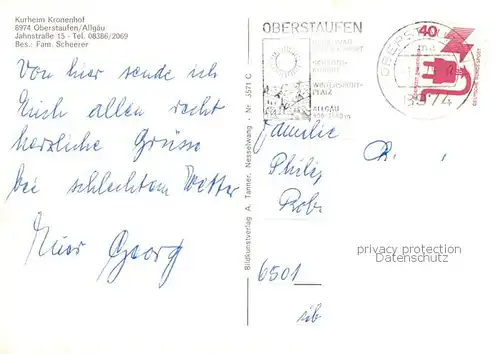 Kurheim Kronenhof
8974 Oberstaufen/Allgäu
Jahnstraße 15 - Tel. 08386/2069
Bes.: Fam. Scheerer
Von hier sende ich
Euch allen recht
herzliche Grüsse
bei schlechtem Wetter
Euer Georg
Bildkunstverlag A. Tanner, Nesselwang - Nr 3571 C
OBERSTAUFEN
SCHROTH-
WINTERSPORT-
PLATZ
ALLGÄU
OBERST
74
40
DEUTSCHE BUNDESPOST
Familie
Philip
Rob
6501
üb
privacy protection
Datenschutz